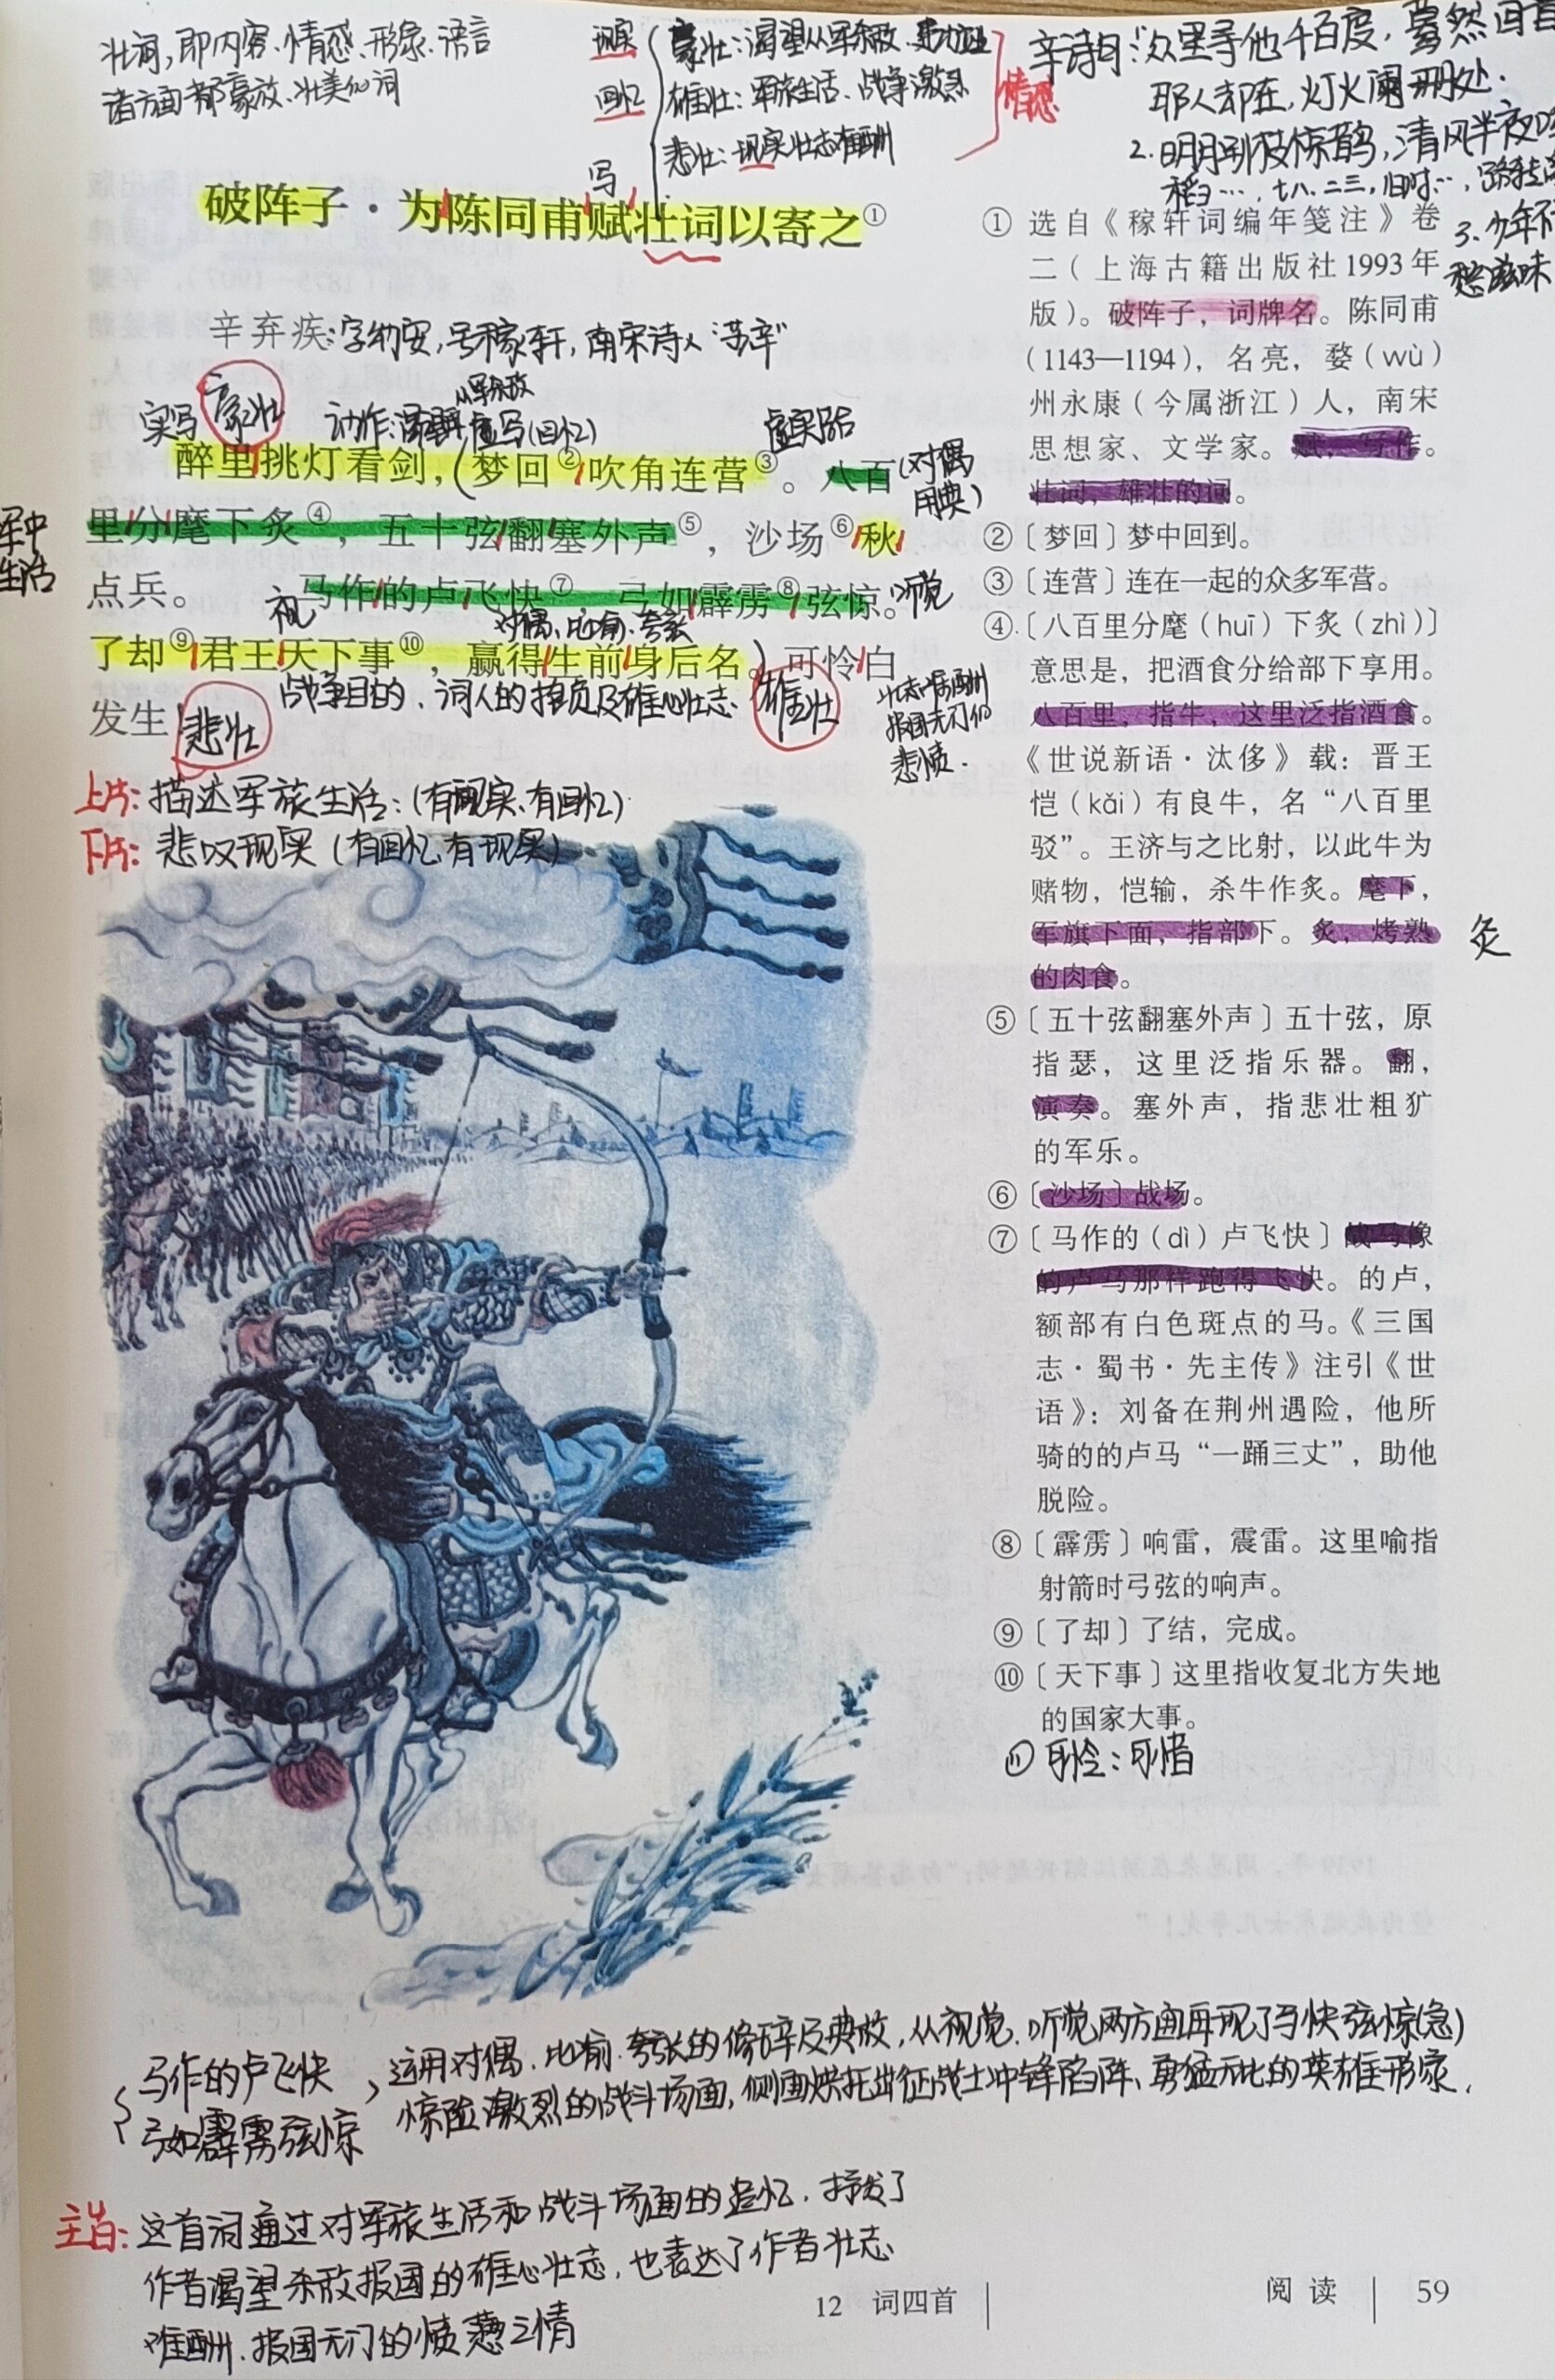 壮词，即内容、情感、形象、语言
诸方面都豪放、壮美的词
现实
回忆
写
豪壮：渴望从军杀敌、建功立业
雄壮：军旅生活、战争激烈
悲壮：现实壮志难酬
情感
辛诗句：“众里寻他千百度，蓦然回首
那人却在，灯火阑珊处.
2.明月别枝惊鹊，清风半夜
稻…，七八、二三，旧时…，路转
3.少年不
愁滋味
破阵子·为陈同甫赋壮词以寄之①
辛弃疾：字幼安，号稼轩，南宋诗人“苏辛”
实写 豪壮
从军杀敌
动作：渴望 虚写（回忆）
虚实结合
醉里挑灯看剑，（梦回②吹角连营③。八百
（对偶
用典）
里分麾下炙④，五十弦翻塞外声⑤，沙场⑥秋
军中
生活
点兵。
马作的卢飞快⑦，弓如霹雳⑧弦惊。听觉
视
对偶、比喻、夸张
了却⑨君王天下事⑩，赢得生前身后名。）可怜白
战争目的、词人的抱负及雄心壮志. 雄壮
发生！悲壮
壮志难酬
报国无门的
悲愤.
上片：描述军旅生活：（有现实、有回忆）
下片：悲叹现实（有回忆、有现实）
① 选自《稼轩词编年笺注》卷
二（上海古籍出版社1993年
版）。破阵子，词牌名。陈同甫
（1143—1194），名亮，婺（wù）
州永康（今属浙江）人，南宋
思想家、文学家。赋，写作。
壮词，雄壮的词。
②〔梦回〕梦中回到。
③〔连营〕连在一起的众多军营。
④〔八百里分麾（huī）下炙（zhì）〕
意思是，把酒食分给部下享用。
八百里，指牛，这里泛指酒食。
《世说新语·汰侈》载：晋王
恺（kǎi）有良牛，名“八百里
驳”。王济与之比射，以此牛为
赌物，恺输，杀牛作炙。麾下，
军旗下面，指部下。炙，烤熟
的肉食。
灸
⑤〔五十弦翻塞外声〕五十弦，原
指瑟，这里泛指乐器。翻，
演奏。塞外声，指悲壮粗犷
的军乐。
⑥〔沙场〕战场。
⑦〔马作的（dì）卢飞快〕战马像
的卢马那样跑得飞快。的卢，
额部有白色斑点的马。《三国
志·蜀书·先主传》注引《世
语》：刘备在荆州遇险，他所
骑的的卢马“一踊三丈”，助他
脱险。
⑧〔霹雳〕响雷，震雷。这里喻指
射箭时弓弦的响声。
⑨〔了却〕了结，完成。
⑩〔天下事〕这里指收复北方失地
的国家大事。
⑪可怜：可惜
马作的卢飞快
弓如霹雳弦惊
，运用对偶、比喻、夸张的修辞及典故，从视觉、听觉两方面再现了马快弦惊（急）
惊险激烈的战斗场面，侧面烘托出征战士冲锋陷阵、勇猛无比的英雄形象.
主旨：这首词通过对军旅生活和战斗场面的追忆，抒发了
作者渴望杀敌报国的雄心壮志，也表达了作者壮志
难酬、报国无门的愤懑之情
12 词四首
阅读 59